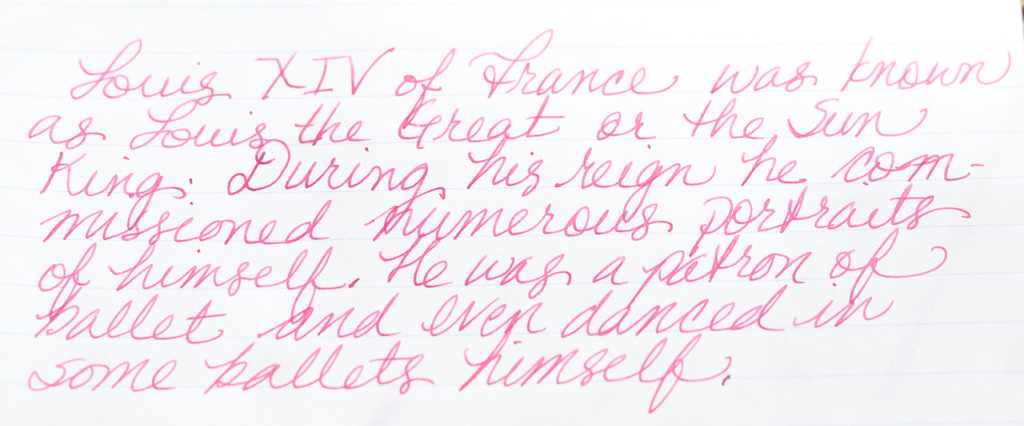 Louis XIV of France was known
as Louis the Great or the Sun
King. During his reign he com-
missioned numerous portraits
of himself. He was a patron of
ballet and even danced in
some ballets himself.